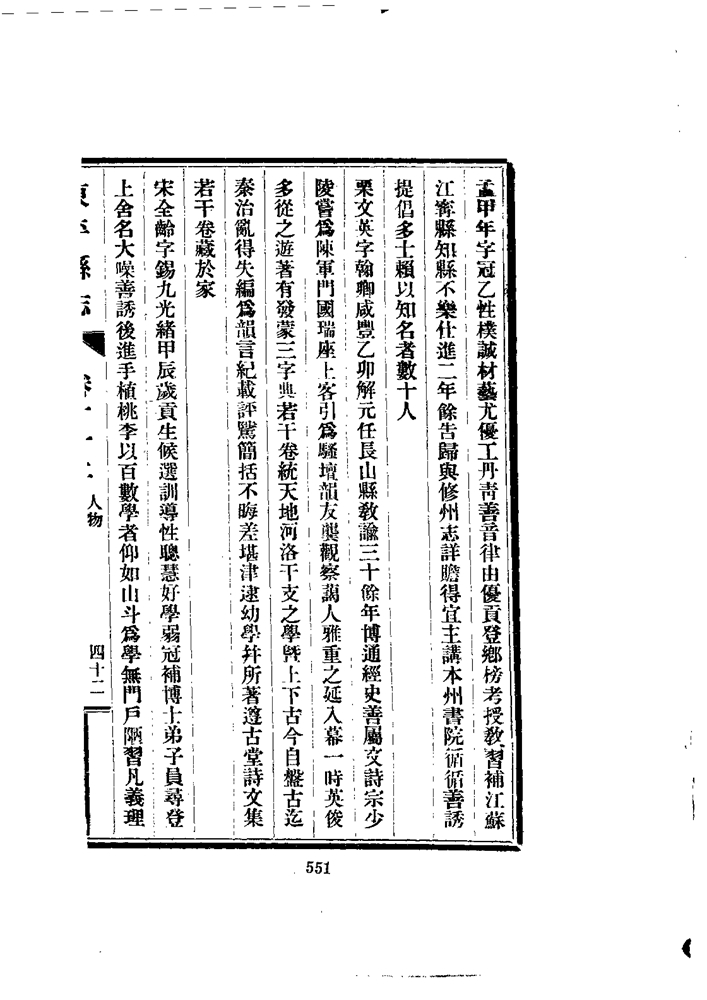 孟甲年字冠乙性樸誠材藝尤優工丹靑善音律由優貢登鄕榜考授敎習補江蘇
江甯縣知縣不樂仕進二年餘吿歸與修州志詳贍得宜主講本州書院循循善誘
提倡多士賴以知名者數十人
栗文英字翰卿咸豐乙卯解元任長山縣敎諭三十餘年博通經史善屬文詩宗少
陵嘗爲陳軍門國瑞座上客引爲騷壇韻友龔觀察藹人雅重之延入幕一時英俊
多從之遊著有發蒙三字典若干卷統天地河洛干支之學曁上下古今自盤古迄
秦治亂得失編爲韻言紀載評騭簡括不晦差堪津逮幼學幷所著邃古堂詩文集
若干卷藏於家
宋全齡字錫九光緒甲辰歲貢生候選訓導性聰慧好學弱冠補博士弟子員尋登
上舍名大噪善誘後進手植桃李以百數學者仰如山斗爲學無門戶陋習凡義理
東平縣志 卷十一上 人物 四十二
551